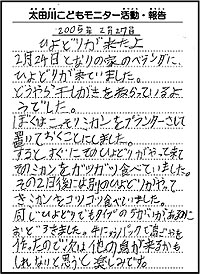 太田川こどもモニター活動・報告
2005年 2月27日
ひよどりが来たよ
2月24日となりの家のベランダに、
ひよどりが来ていました。
どうやら干しがきをねらっているよ
うでした。
ぼくは ミカンをプランターにさして
置いておくことにしました。
すると、すぐにひよどりがやって来て
ミカンをガツガツ食べていました。
その2日後には別のひよどりがやって
きミカンをコソコソ食べていました。
同じひよどりでもタイプのちがいがあるのに
おどろきました。牛にゅうパックで
作ったので次は他の鳥が来るかも
しれないと思うと楽しみです。